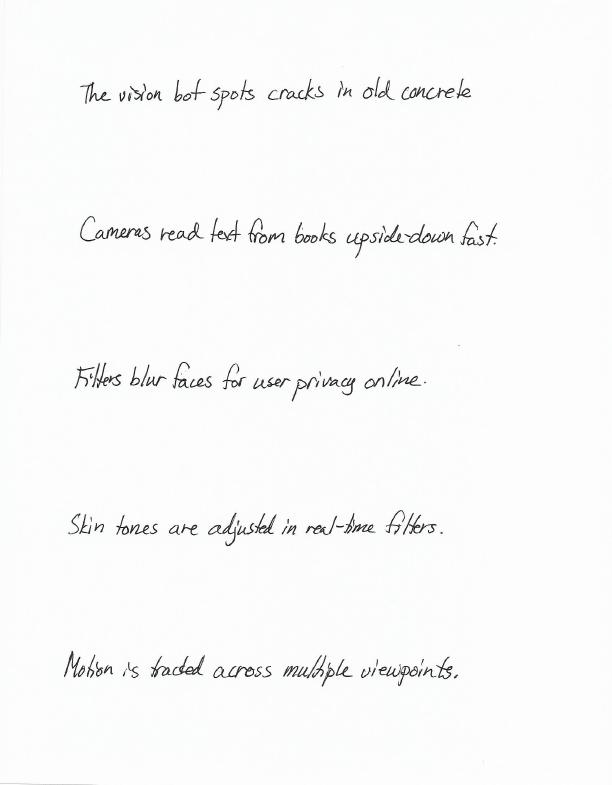 The vision bot spots cracks in old concrete
Cameras read text from books upside-down fast.
Filters blur faces for user privacy online.
Skin tones are adjusted in real-time filters.
Motion is tracked across multiple viewpoints.